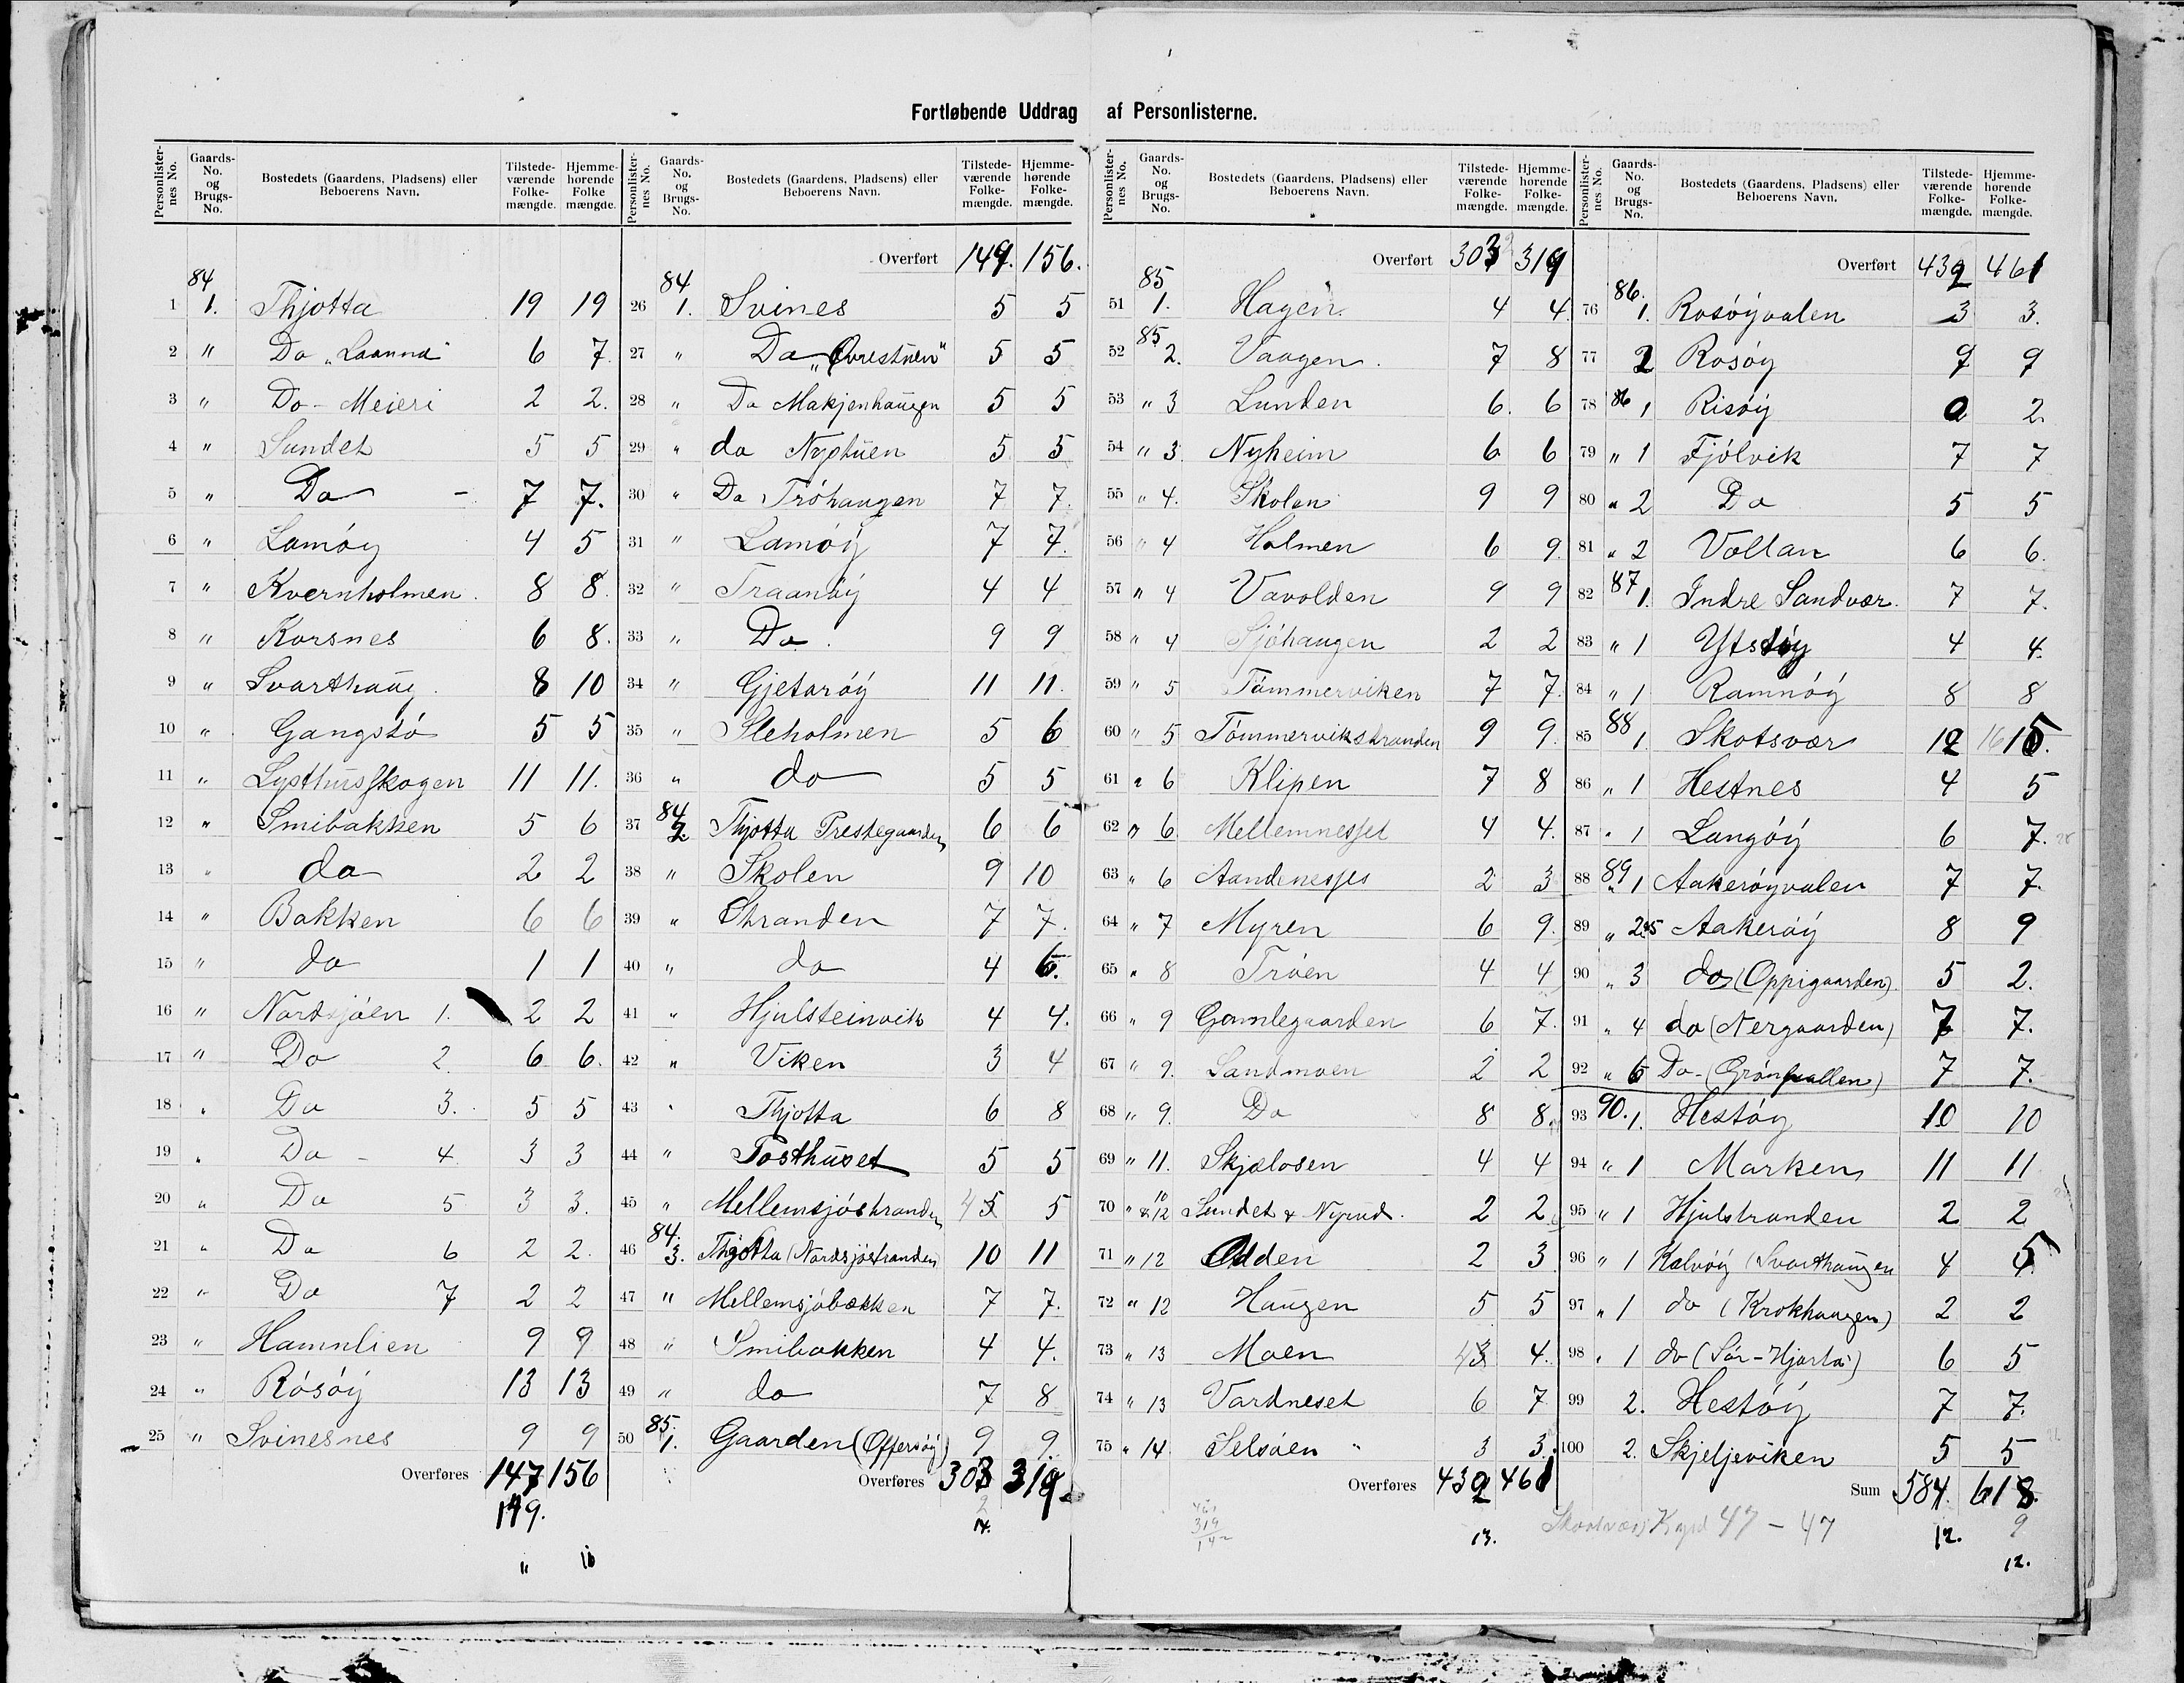 Fortløbende Uddrag af Personlisterne.
Personlister-nes No. Gaards-No. og Brugs-No. Bostedets (Gaardens, Pladsens) eller Beboerens Navn. Tilstede-værende Folke-mængde. Hjemme-hørende Folke mængde.
84
1 1. Thjøtta 19 19
2 " Do „Laanna" 6 7
3 " Do - Meieri 2 2.
4 " Sundet 5 5
5 " Do - 7 7.
6 " Lamøy 4 5
7 " Kvernholmen. 8 8.
8 " Korsnes 6 8.
9 " Svarthaug. 8 10
10 " Gangstø 5 5
11 " Lysthusskogen 11 11.
12 " Smibakken 5 6
13 " do 2 2
14 " Bakken 6 6
15 " do 1 1
16 " Nordsjøen 1. 2 2
17 " Do 2. 6 6.
18 " Do 3. 5 5
19 " Do - 4. 3 3
20 " Do 5 3 3.
21 " Do 6 2 2.
22 " Do 7 2 2
23 " Hamnlien 9 9
24 " Røsøy 13 13
25 " Svinesnes 9 9
Overføres 147 156
149.
" 10
Personlister-nes No. Gaards-No. og Brugs-No. Bostedets (Gaardens, Pladsens) eller Beboerens Navn. Tilstede-værende Folke-mængde. Hjemme-hørende Folke-mængde.
Overført 149. 156.
84
26 1. Svines 5 5
27 " Do „Øvrestuen" 5 5
28 " Do Makjenhaugen 5 5
29 " do Nystuen 5 5
30 " Do Trøhaugen 7 7.
31 " Lamøy 7 7.
32 " Traanøy 4 4
33 " Do. 9 9
34 " Gjetarøy 11 11.
35 " Sleholmen 5 6
36 " do 5 5
84
37 2. Thjøtta Prestegaarden 6 6
38 " Skolen 9 10
39 " Stranden 7 7.
40 " do 4 6.
41 " Hjulsteinvik 4 4.
42 " Viken 3 4
43 " Thjøtta 6 8
44 " Posthuset 5 5
45 " Mellemsjøstranden 4 5 5
84.
46 3. Thjøtta (Nordsjøstranden) 10 11
47 " Mellemsjøbakken 7 7.
48 " Smibakken 4 4.
49 " do 7 8
85.
50 1. Gaarden (Offersøy) 9 9.
Overføres 303 319
2
14.
Personlister-nes No. Gaards-No. og Brugs-No. Bostedets (Gaardens, Pladsens) eller Beboerens Navn. Tilstede-værende Folke-mængde. Hjemme-hørende Folke-mængde.
Overført 303 319
85
51 1. Hagen. 4 4.
85
52 2. Vaagen. 7 8
53 " 3 Lunden 6. 6
54 " 3. Nyheim 6 6
55 " 4. Skolen 9 9
56 " 4 Holmen 6 9.
57 " 4 Vavolden 9 9
58 " 4 Sjøhaugen 2 2
59 " 5 Tømmerviken 7 7.
60 " 5 Tømmervikstranden 9 9.
61 " 6 Klipen 7 8
62 " 6. Mellemnesset 4 4.
63 " 6 Aandenesses 2 3
64 " 7 Myren 6 9.
65 " 8 Trøen 4 4
66 " 9 Gamlegaarden 6 7.
67 " 9. Sandmoen 2 2
68 " 9. Do 8 8.
69 " 11. Skjelosen 4 4
70 " 10 & 12 Sundet & Nyrud. 2 2
71 " 12 Odden 2 3
72 " 12 Haugen 5 5
73 " 13 Moen 4 3 4.
74 " 13 Vardneset 6 7
75 " 14. Selsøen " 3 3.
Overføres 432 461
319
142
13.
Personlister-nes No. Gaards-No. og Brugs-No. Bostedets (Gaardens, Pladsens) eller Beboerens Navn. Tilstede-værende Folke-mængde. Hjemme-hørende Folke-mængde.
Overført 432 461
86.
76 1. Rosøyvalen 3 3.
77 2 Rosøy 9 9
78 86 1 Risøy 0 2.
79 " 1 Fjølvik 7 7
80 " 2 Do 5 5
81 " 2 Vollan 6 6.
82 87 1. Indre Sandvær. 7 7.
83 " 1 Ytstøy 4 4.
84 " 1 Ramnøy 8 8
88
85 1. Skotsvær 12 16 15.
86 " 1 Hestnes 4 5
87 " 1 Langøy 6 7.
88 89 1 Aakerøyvalen 7 7.
89 " 2&5 Aakerøy 8 9
90 " 3 do (Oppigaarden). 5 2.
91 " 4 do (Nergaarden) 7 7.
92 " 6 Do - (Grønhallen) 7 7.
93 90. 1. Hestøy 10 10
94 " 1 Marken 11 11
95 " 1 Hjulstranden 2 2
96 " 1 Kalvøy (Svarthaugen 4 5
97 " 1 do (Krokhaugen) 2 2
98 " 1 do (Sør-Hjarta) 6 5
99 2. Hestøy 7 7.
100 2. Skjeljeviken 5 5
Sum 584. 618.
47 - 47
12. 9
12.